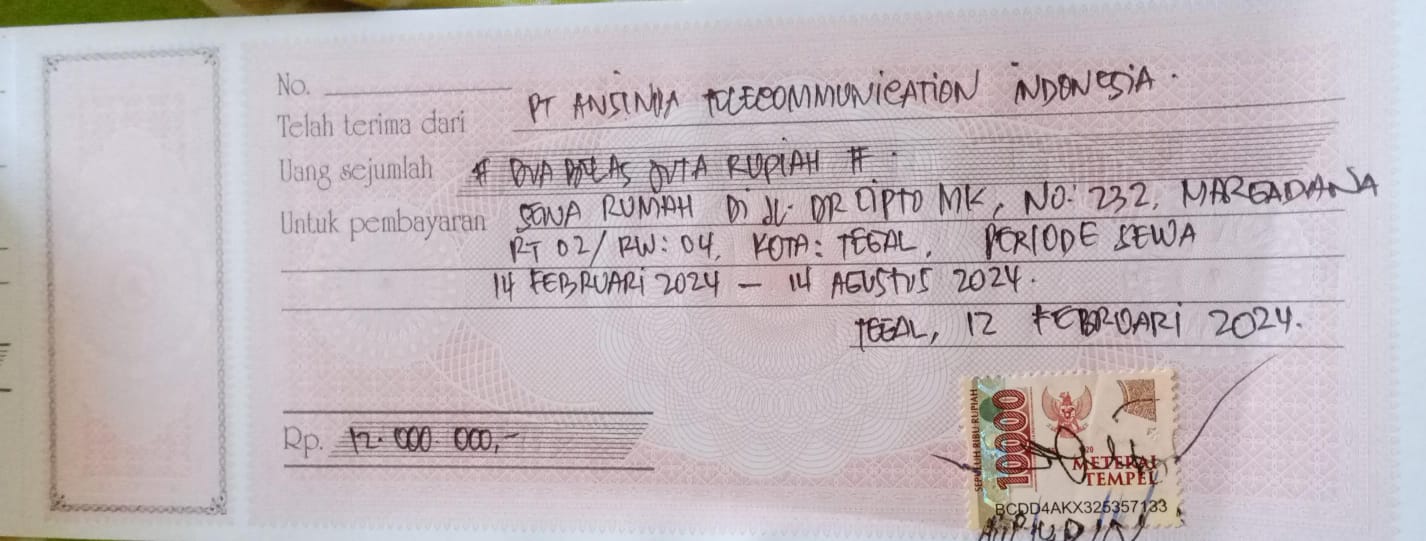 No.
Telah terima dari PT ANSINDA TELECOMMUNICATION INDONESIA.
Uang sejumlah # DUA BELAS JUTA RUPIAH #.
Untuk pembayaran SEWA RUMAH Di JL. DR CIPTO MK, NO: 232, MARGADANA
RT 02/RW: 04, KOTA: TEGAL, PERIODE SEWA
14 FEBRUARI 2024 - 14 AGUSTUS 2024.
TEGAL, 12 FEBRUARI 2024.
Rp. 12.000.000,-
SEPULUH RIBU RUPIAH
10000
METERAI
TEMPEL
BCDD4AKX325357133